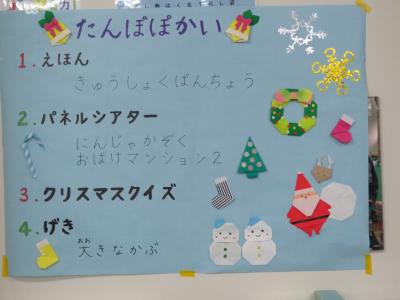 たんぽぽかい
1.えほん
きゅうしょくばんちょう
2.パネルシアター
にんじゃかぞく
おばけマンション2
3.クリスマスクイズ
4.げき
おお
大きなかぶ